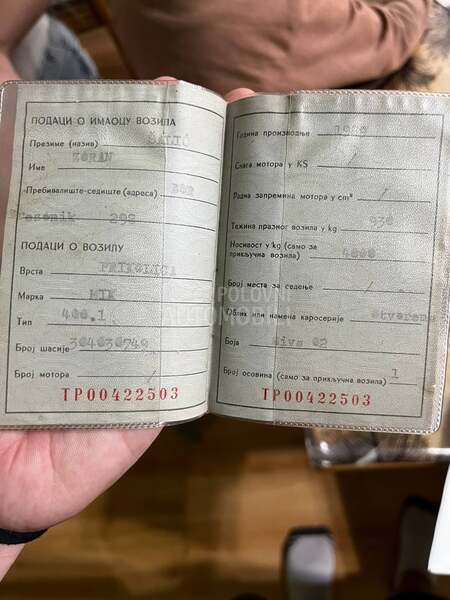 ПОДАЦИ О ИМАОЦУ ВОЗИЛА
Презиме (назив) ŠALIĆ
Име ZORAN
Пребивалиште-седиште (адреса)
298
ПОДАЦИ О ВОЗИЛУ
Врста PRIKOLICA
Марка MTK
Тип 400.1
Број шасије 304030749
Број мотора /
TP00422503
Година производње
Снага мотора у KS /
Радна запремина мотора у cm³ /
Тежина празног возила у kg 930
Носивост у kg (само за
прикључна возила) 4000
Број места за седење /
Облик или намена каросерије otvorena
Боја siva 02
Број осовина (само за прикључна возила) 1
TP00422503
POLOVNI